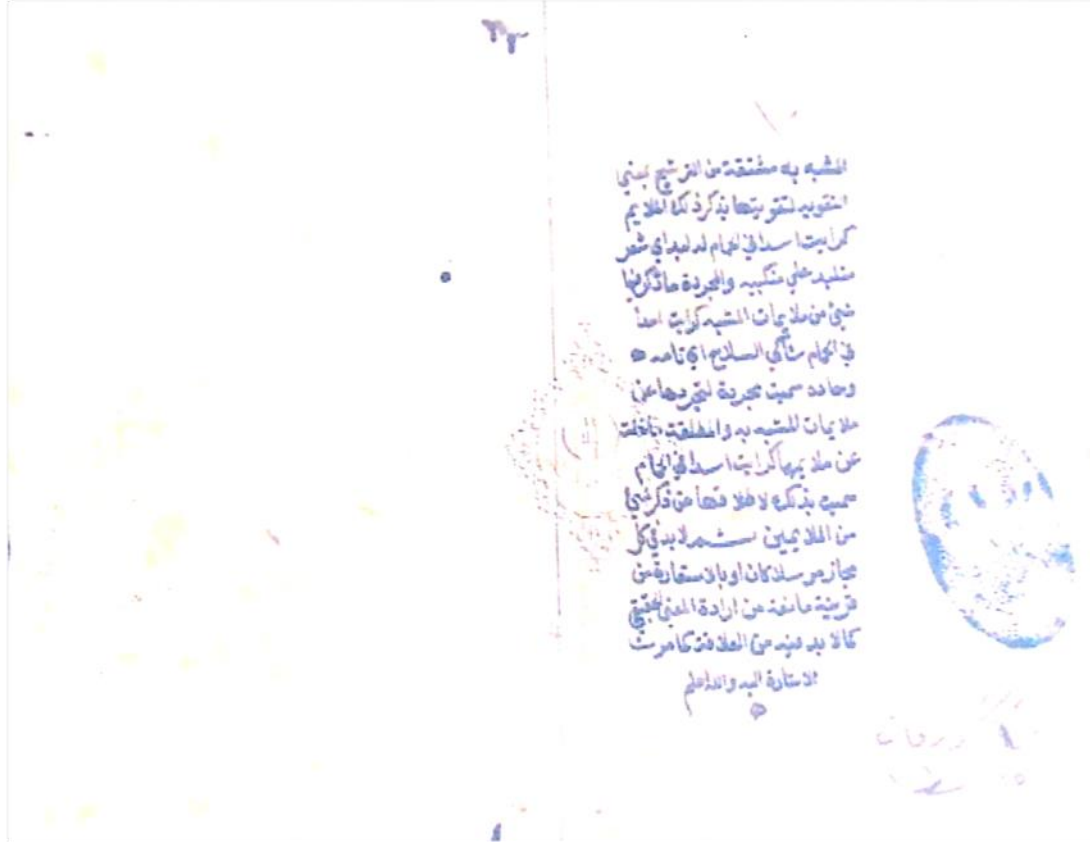 المشبه به مشتقة من الترشيح بمعني
التقويه لتقويتها بذكر ذلك الملايم
كرايت اسدا في الحمام له لبد اي شعر
متلبد علي منكبيه والمجردة ما ذكر فيها
شئ من ملايمات المشبه كرايت اسدا
في الحمام شاكي السلاح اي تامه
وحاده سميت مجردة لتجردها عن
ملايمات المشبه به والمطلقة ما خلت
عن ملايمها كرايت اسدا في الحمام
سميت بذلك لاطلاقها من ذكر شئ
من الملايمين ثم لا بد في كل
مجاز مرسلا كان او بالاستعارة من
قرينة مانعة من ارادة المعني الحقيقي
كما لا بد فيه من العلاقة كما مرت
الاشارة اليه والله اعلم